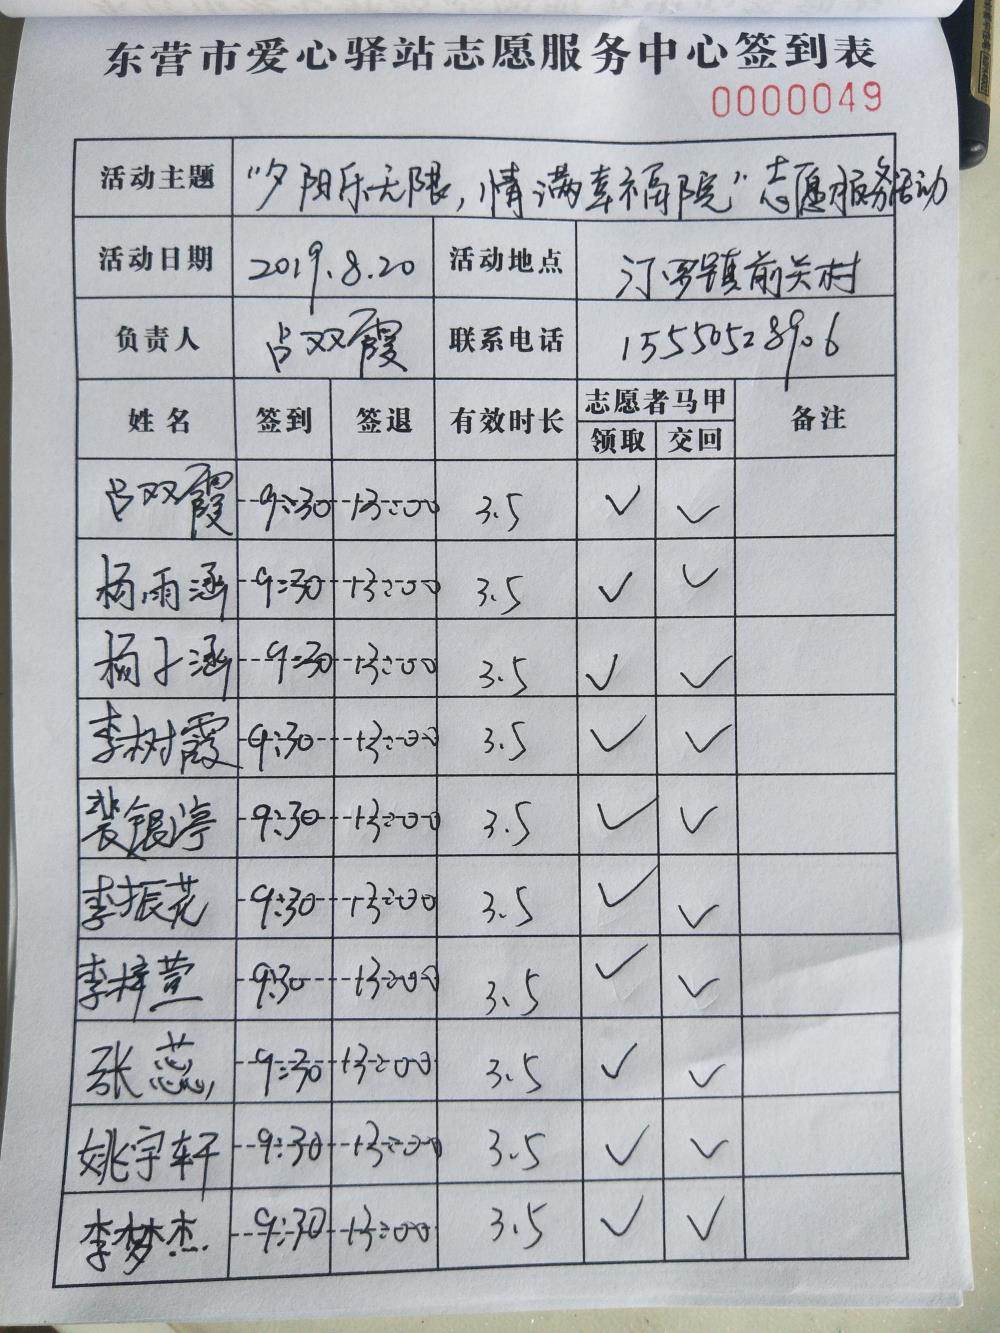 东营市爱心驿站志愿服务中心签到表
0000049
活动主题 “夕阳乐无限，情满幸福院”志愿服务活动
活动日期 2019.8.20 活动地点 汀罗镇前关村
负责人 吕双霞 联系电话 15550528906
姓名 签到 签退 有效时长 志愿者马甲 备注
领取 交回
吕双霞 9:30 13:00 3.5 ✓ ✓
杨雨涵 9:30 13:00 3.5 ✓ ✓
杨子涵 9:30 13:00 3.5 ✓ ✓
李树霞 9:30 13:00 3.5 ✓ ✓
裴银婷 9:30 13:00 3.5 ✓ ✓
李振花 9:30 13:00 3.5 ✓ ✓
李梓萱 9:30 13:00 3.5 ✓ ✓
张蕊 9:30 13:00 3.5 ✓ ✓
姚宇轩 9:30 13:00 3.5 ✓ ✓
李梦杰 9:30 13:00 3.5 ✓ ✓